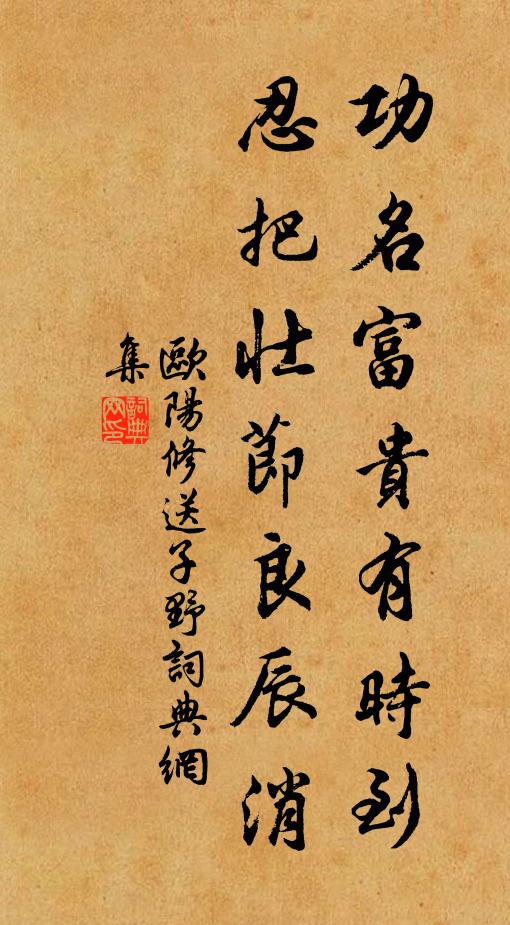 功名富貴有時到
忍把壯節良辰消
歐陽修送子野詞典網
集
詞典
網印